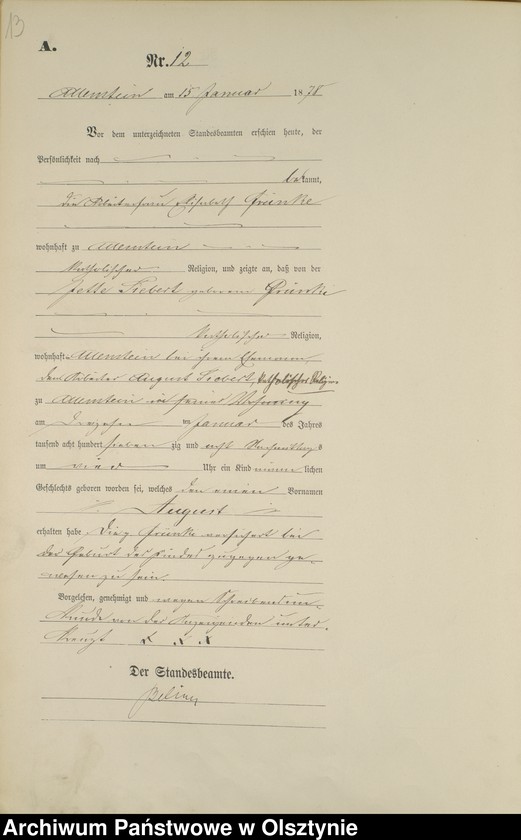 13
A.
Nr. 12
Allenstein am 15 Januar 1878
Vor dem unterzeichneten Standesbeamten erschien heute, der
Persönlichkeit nach
bekannt,
die Arbeiterfrau Elisabeth Prünke
wohnhaft zu Allenstein
katholischer Religion, und zeigte an, daß von der
Jette Siebert geborene Prünke
katholischer Religion,
wohnhaft Allenstein bei ihrem Ehemann,
dem Arbeiter August Siebert, katholischer Religion
zu Allenstein in seiner Wohnung
am dreizehn im Januar des Jahres
tausend acht hundert sieben zig und acht Nachmittags
um vier Uhr ein Kind männ lichen
Geschlechts geboren worden sei, welches den einen Vornamen
August
erhalten habe. Die p Prünke versichert bei
der Geburt des Kindes zugegen ge-
wesen zu sein.
Vorgelesen, genehmigt und wegen Schreibensun-
kunde von der Anzeigenden unter-
kreuzt x x x
Der Standesbeamte.
Archiwum Państwowe w Olsztynie